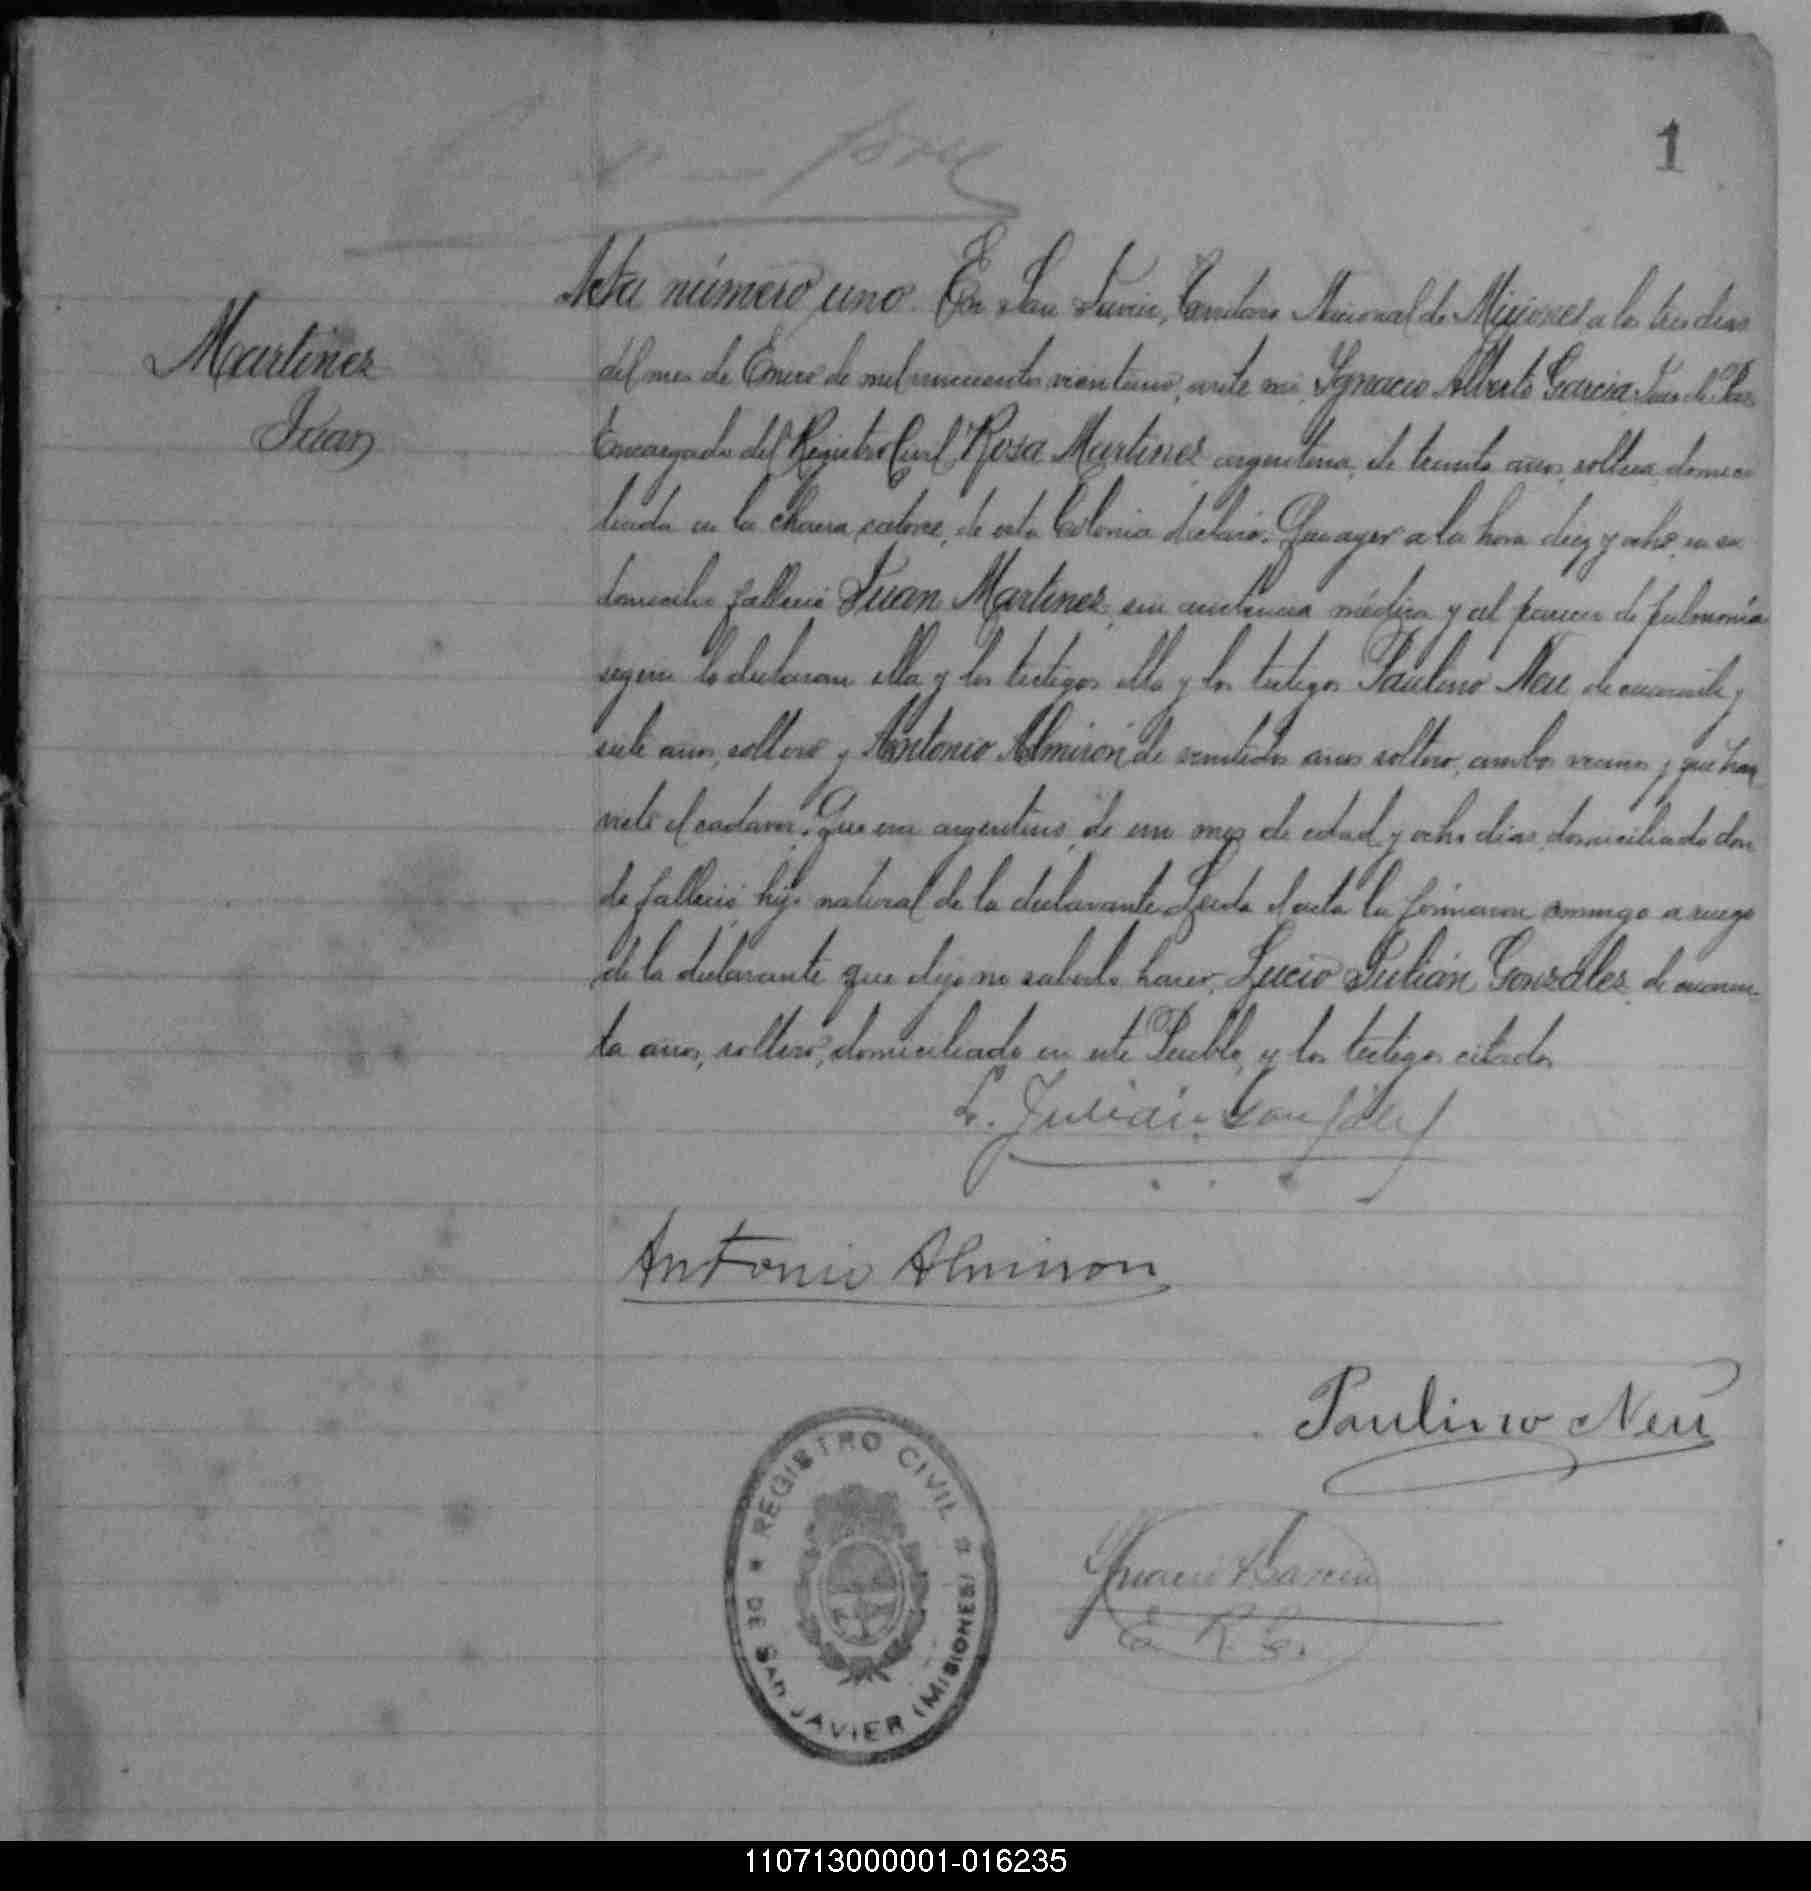 1
Acta número uno. En San Javier, Territorio Nacional de Misiones a los tres dias
Martinez
Juan
del mes de Enero de mil novecientos veintiuno, ante mi, Ignacio Alberto Garcia Juez de Paz
Encargado del Registro Civil Rosa Martinez, argentina, de treinta años, soltera, domici
liada en la chacra catorce, de esta Colonia declaró: Que ayer a la hora diez y ocho, en su
domicilio falleció Juan Martinez, sin asistencia médica y al parecer de pulmonia
segun lo declaran ella y los testigos ella y los testigos Paulino Neu, de cuarenta y
siete años, soltero y Antonio Almirón de veintidos años soltero, ambos vecinos y que han
visto el cadaver. Que era argentino, de un mes de edad y ocho dias, domiciliado don
de falleció, hijo natural de la declarante. Leida el acta la firmaron conmigo a ruego
de la declarante que dijo no saberlo hacer, Lucio Julián Gonzales, de cuaren-
ta años, soltero, domiciliado en este Pueblo, y los testigos citados
L. Julián Gonzalez
Antonio Almiron
Paulino Neu
Ignacio A Garcia
E. R. C.
REGISTRO CIVIL
DE SAN JAVIER (MISIONES)
110713000001-016235